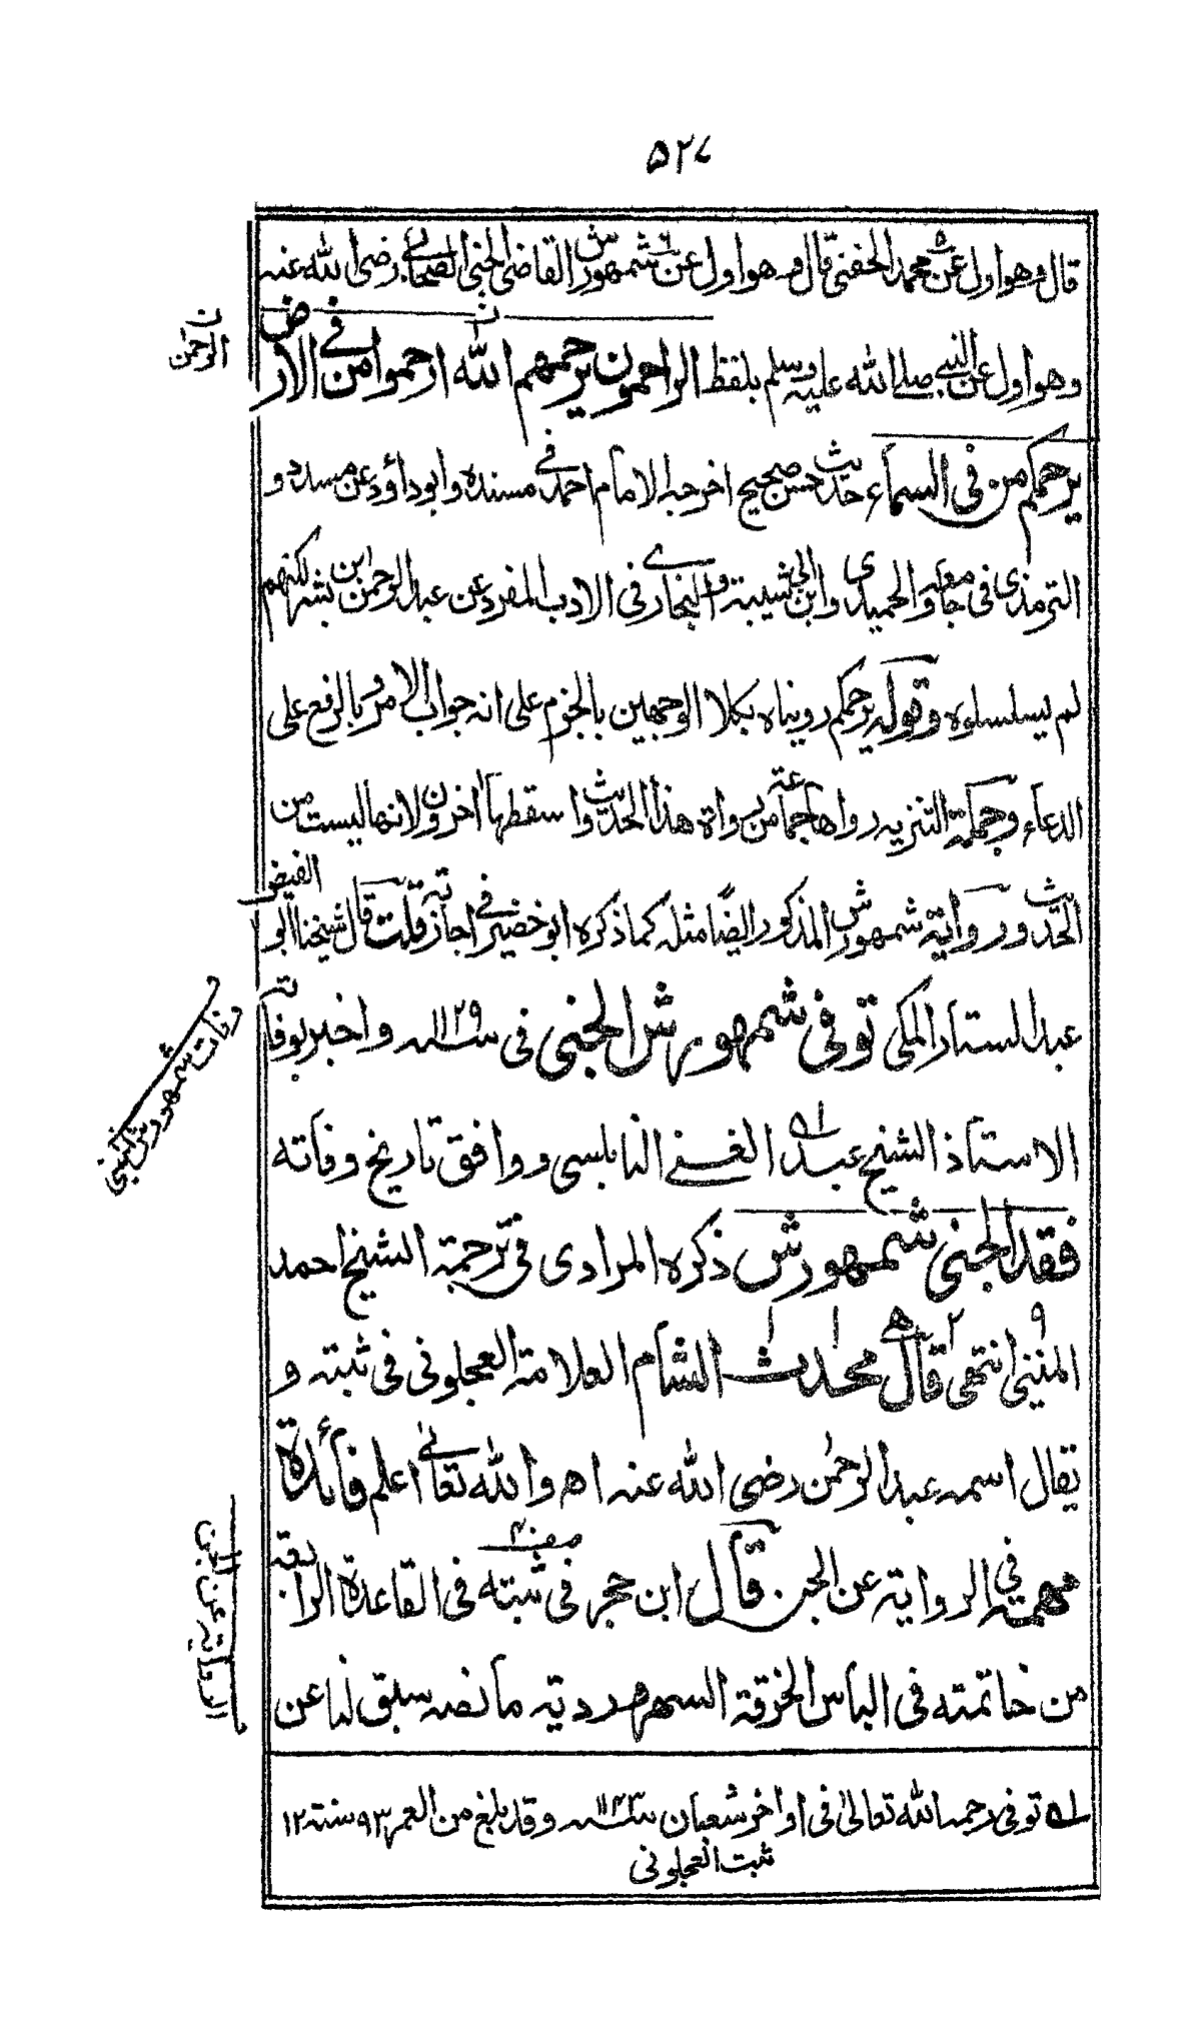 ٥٢٧
قال وهو اول عن محمد الحفنى قال وهو اول عن شمهورش القاضى الجنى الصحابى رضى الله عنه
وهو اول عن النبى صلى الله عليه وسلم بلفظ الراحمون يرحمهم الله ارحموا من فى الارض
الرحمن
يرحمكم من فى السماء حديث حسن صحيح اخرجه الامام احمد فى مسنده وابوداؤد عن مسدد و
الترمذى فى جامعه والحميدى وابن ابى شيبة والبخارى فى الادب المفرد عن عبدالرحمن ابن بشر لكنهم
لم يسلسلوه وقوله يرحمكم رويناه بكلا الوجهين بالجزم على انه جواب الامر وبالرفع على
الدعاء وجملة التنزيه رواها جماعة من رواة هذا الحديث واسقطها اخرون لانها ليست من
الحديث ورواية شمهورش المذكور ايضًا مثله كما ذكره ابوخضير فى اجازته قلت قال شيخنا ابو الفيض
عبدالستار المكى توفى شمهورش الجنى فى سنة ١١٢٩ واخبر بوفاته
وفات شمهورش الجنى
الاستاذ الشيخ عبد الغنى النابلسى ووافق تاريخ وفاته
فقد الجنى شمهورش ذكره المرادى فى ترجمة الشيخ احمد
١١٢٩
المنينى انتهى قال محدث الشام العلامة العجلونى فى ثبته و
يقال اسمه عبدالرحمٰن رضى الله عنه اه والله تعالىٰ اعلم فائدة
مهمة فى الرواية عن الجن قال ابن حجر فى ثبته صفہ٣٠ فى القاعدة الرابعة
الرواية عن الجن
من خاتمته فى الباس الخرقة السهروردية ما نصه سبق لنا عن
له توفى رحمه الله تعالىٰ فى اواخر شعبان سنة ١١٤٣ وقد بلغ من العمر ٩٣ سنة ١٢
ثبت العجلونى